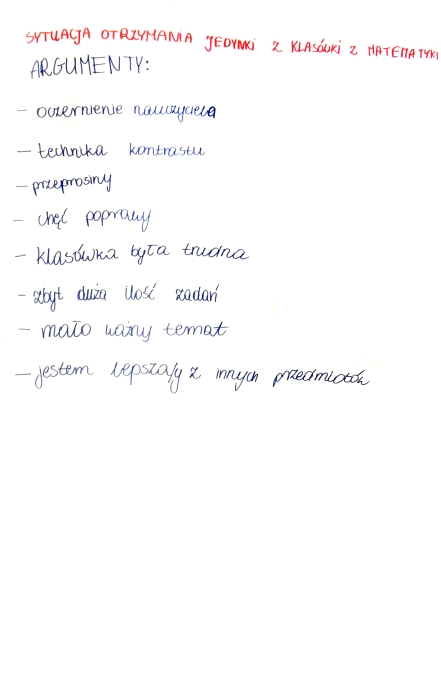 SYTUACJA OTRZYMANIA JEDYNKI Z KLASÓWKI Z MATEMATYKI
ARGUMENTY:
- oczernienie nauczyciela
- technika kontrastu
- przeprosiny
- chęć poprawy
- klasówka była trudna
- zbyt duża ilość zadań
- mało ważny temat
- jestem lepsza/y z innych przedmiotów